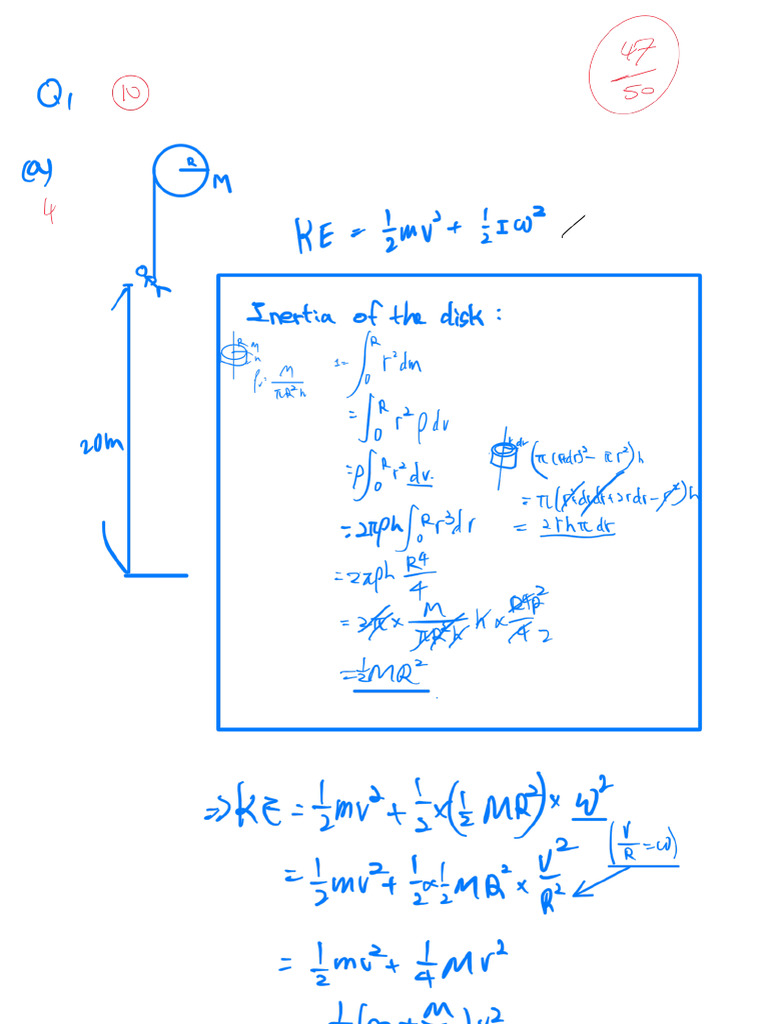 47/50
Q1 10
(a)
4
R
M
KE = 1/2 mv² + 1/2 I ω²
Inertia of the disk :
R M
h
ρ = M/(πR²h)
I = ∫₀ᴿ r² dm
= ∫₀ᴿ r² ρ dv
= ρ ∫₀ᴿ r² dv
= 2πρh ∫₀ᴿ r³ dr
= 2πρh R⁴/4
= 2π × M/(πR²h) h × R⁴R²/4 2
= 1/2 MR²
r dr
(π(r+dr)² - πr²)h
= π(r²+drdr+2rdr-r²)h
= 2rhπdr
20m
⇒ KE = 1/2 mv² + 1/2 × (1/2 MR²) × ω²
(V/R = ω)
= 1/2 mv² + 1/2 × 1/2 MR² × V²/R²
= 1/2 mv² + 1/4 Mv²
1/2 (m + M/ ) v²